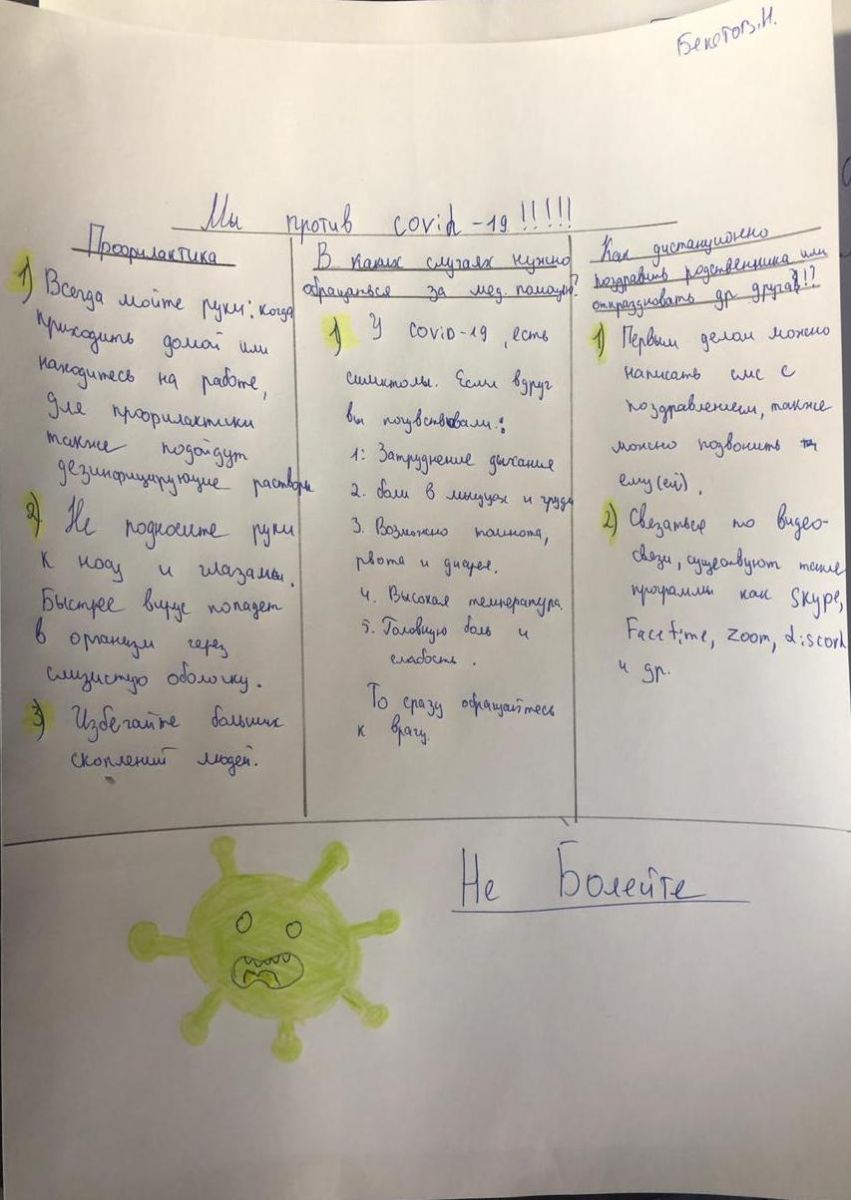 Бекетов.Н.
Мы против covid-19!!!!!
Профилактика
1) Всегда мойте руки: когда
приходить домой или
находитесь на работе,
для профилактики
также подойдут
дезинфицирующие растворы
2) Не подносите руки
к носу и глазами.
Быстрее вирус попадет
в организм через
слизистую оболочку.
3) Избегайте больших
скоплений людей.
В каких случаях нужно
обращаться за мед. помощью?
1) У covid-19, есть
симптомы. Если вдруг
вы почувствовали:
1: Затруднение дыхание
2. боли в мышцах и груди
3. Возможно тошнота,
рвота и диарея.
4. Высокая температура
5. Головную боль и
слабость.
То сразу обращайтесь
к врачу.
Как дистанционно
поздравить родственника или
отпраздновать др друга?!?
1) Первым делом можно
написать смс с
поздравлением, также
можно позвонить
ему(ей).
2) Связаться по видео-
связи, существуют такие
программы как Skype,
Facetime, zoom, discord
и др.
Не Болейте